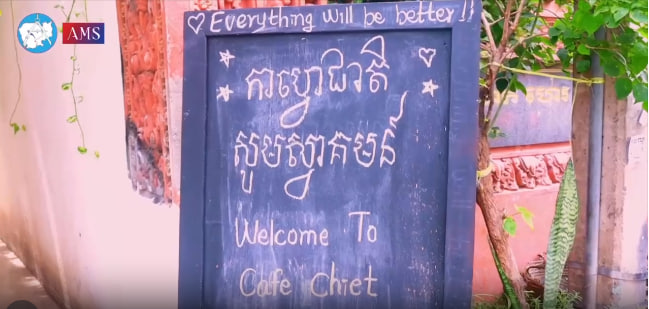 AMS
Everything will be better!!
កាហ្វេជាតិ
សូមស្វាគមន៍
Welcome To
Cafe Chiet